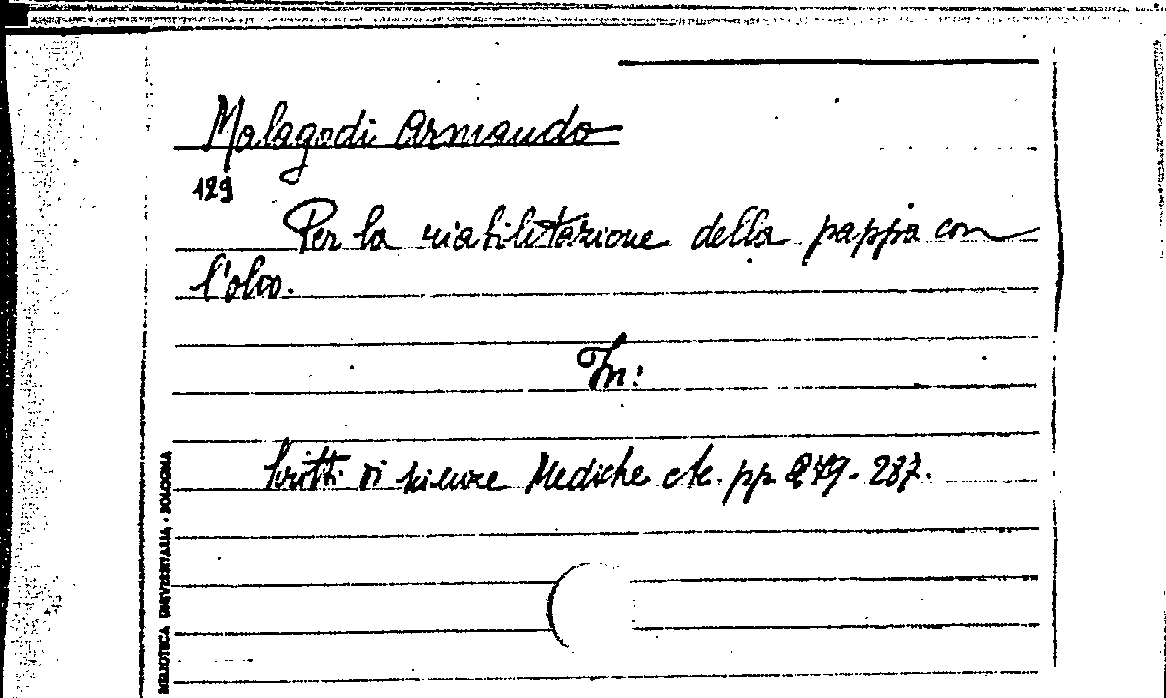 Malagodi Armando
129
Per la riabilitazione della pappa con
l'olio.
In:
Scritti di scienze Mediche etc. pp. 279-287.
BIBLIOTECA UNIVERSITARIA - BOLOGNA